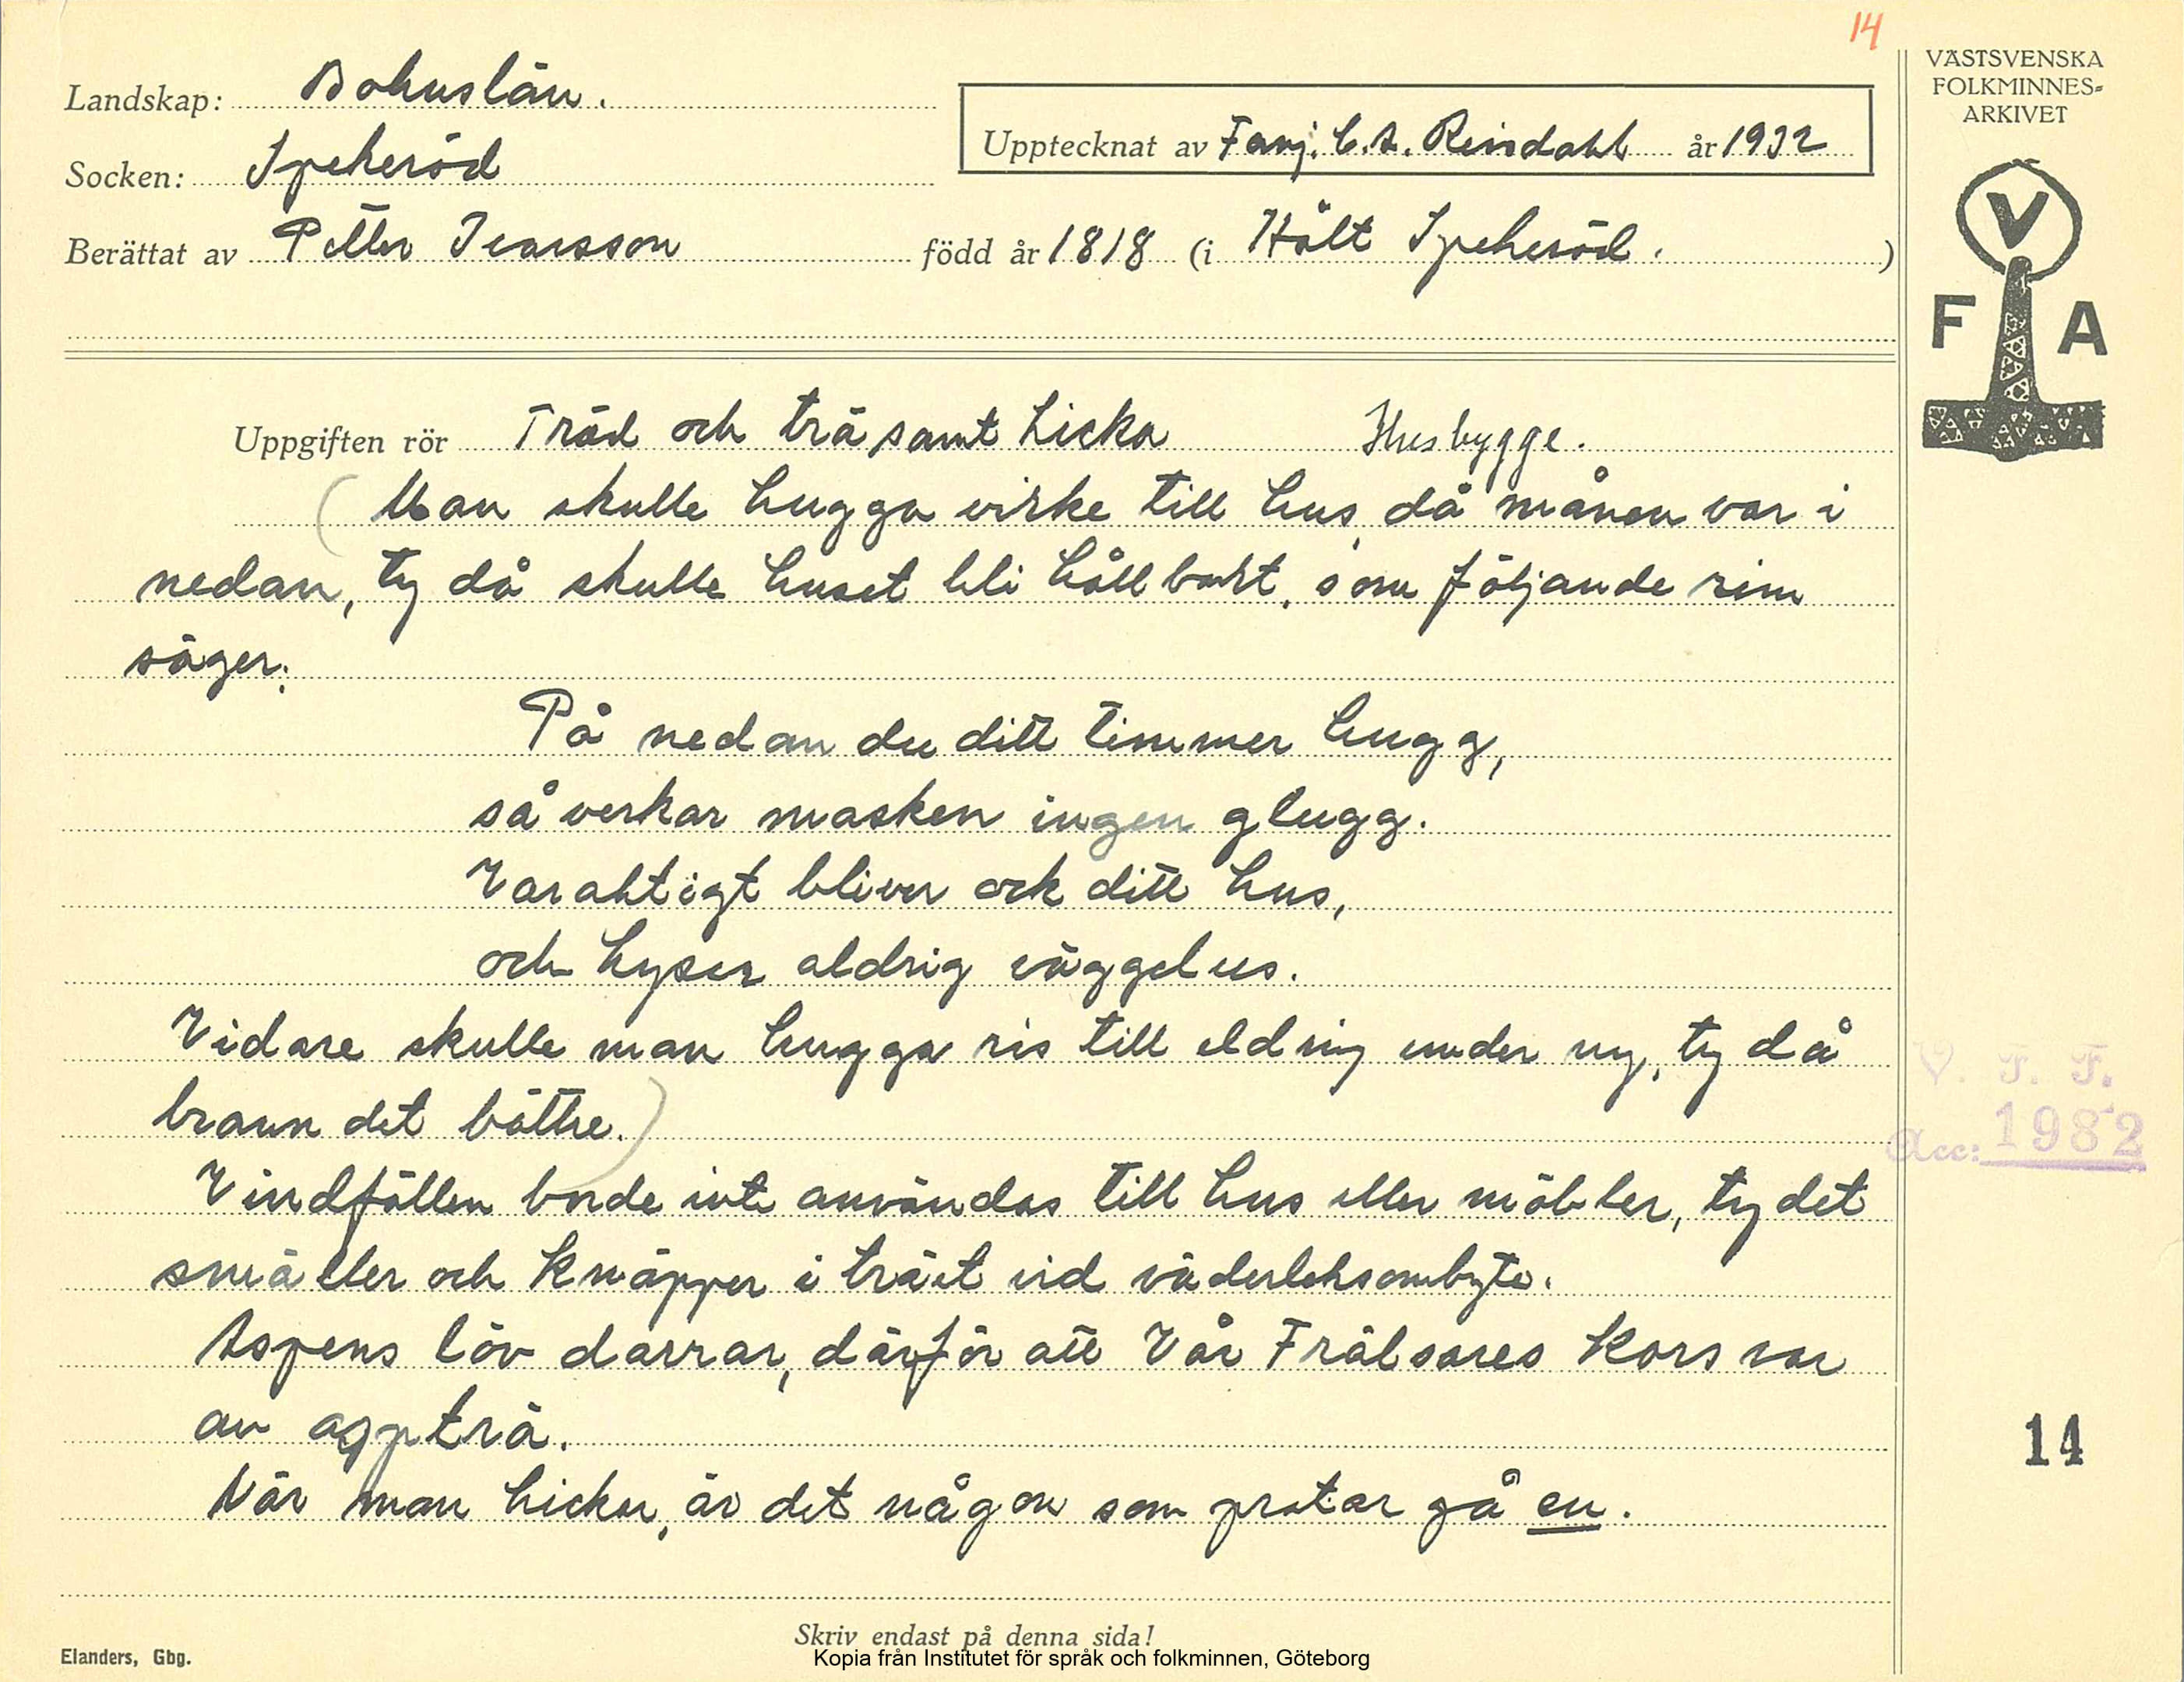 14
VÄSTSVENSKA
FOLKMINNES-
ARKIVET
Landskap: Bohuslän.
Upptecknat av Fanj. C.A. Reindahl år 1932
Socken: Spekeröd
Berättat av Petter Ivarsson född år 1818 (i Hält Spekeröd.)
V
F A
Uppgiften rör Träd och trä samt hicka Husbygge.
(Man skulle hugga virke till hus, då månen var i
nedan, ty då skulle huset bli hållbart, som följande rim
säger:
På nedan du ditt timmer hugg,
så verkar masken ingen glugg.
Varaktigt bliver ock ditt hus,
och hyser aldrig väggelus.
Vidare skulle man hugga ris till eldning under ny, ty då
brann det bättre.)
V. F. F.
Acc: 1982
Vindfällen borde inte användas till hus eller möbler, ty det
smäller och knäpper i träet vid väderleksombyte.
Aspens löv darrar, därför att Vår Frälsares kors var
av aspträ.
14
När man hickar, är det någon som pratar på en.
Skriv endast på denna sida!
Elanders, Gbg.
Kopia från Institutet för språk och folkminnen, Göteborg